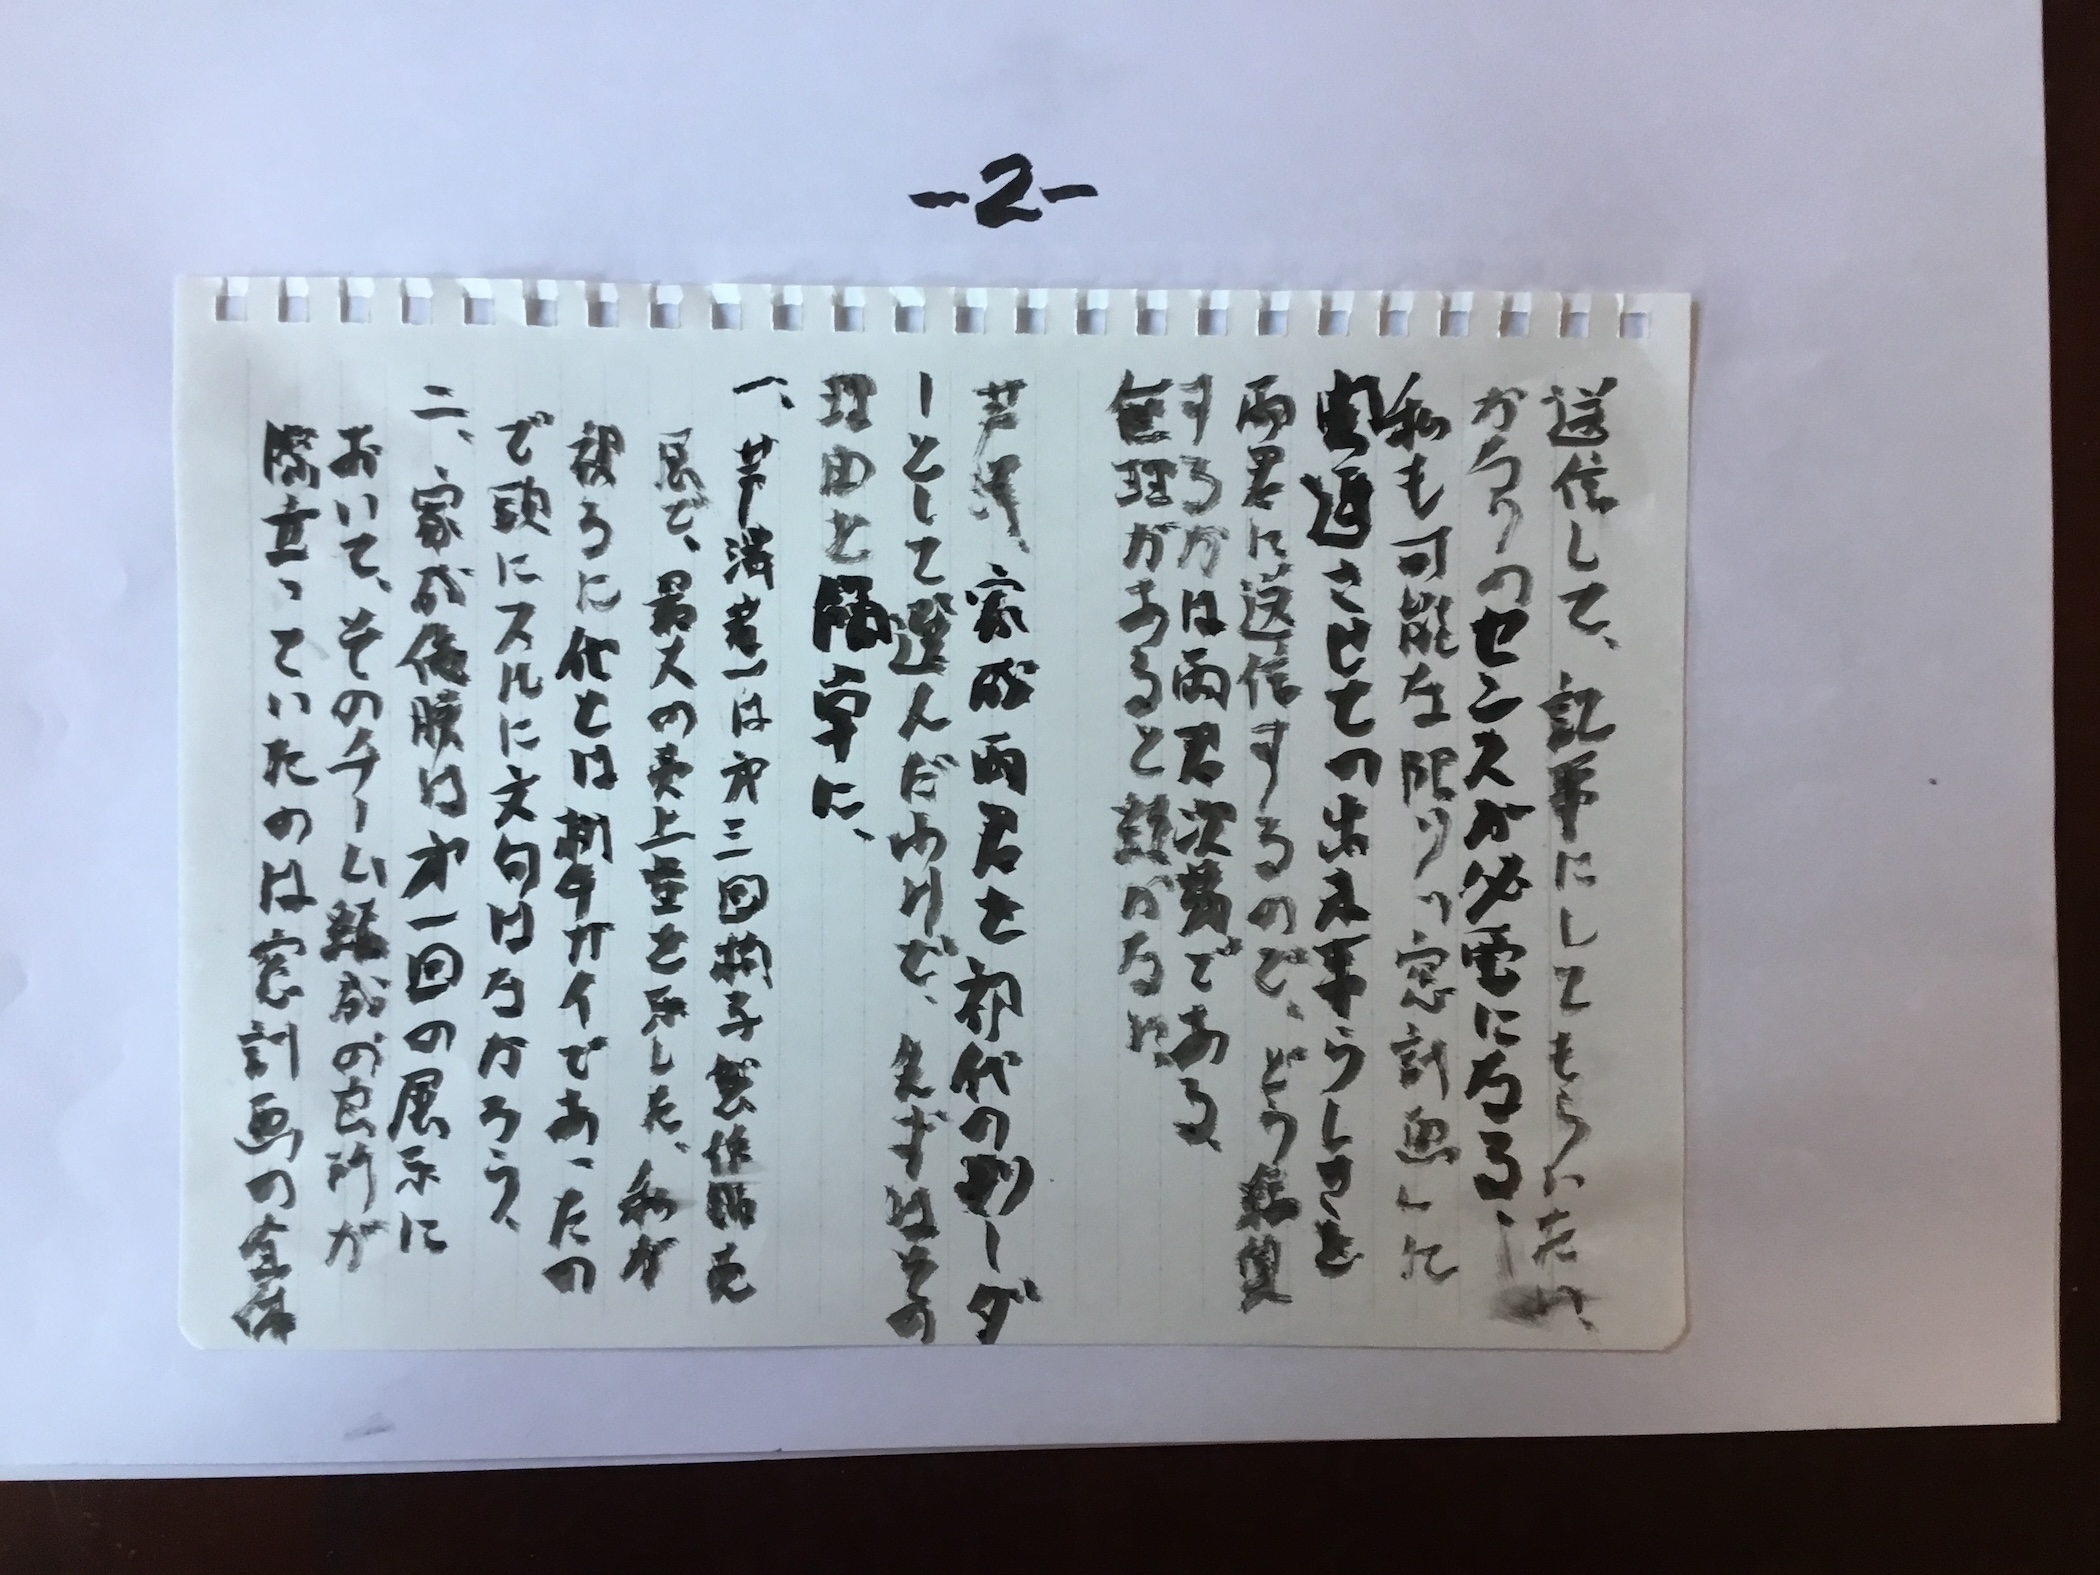 -2-
送信して、記事にしてもらいたい、
かなりのセンスが必要になる、
私も可能な限り、窓計画した
させての出来事らしさを
両君に送信するので、どう
するかは両君次第である、
無理があると はない、
芦澤、家成両君を初代のリーダ
ーとして選んだわけで、先ずはその
理由を簡単に、
一、芦澤 は第三回椅子製作販売
展で、最大の売上 を示した、私が
被ろに化とは ガイであったの
で頭にスルに文句はなかろう、
二、家成俊勝は第一回の展示に
おいて、そのチーム結成の 所が
際立っていたのは窓計画の全体